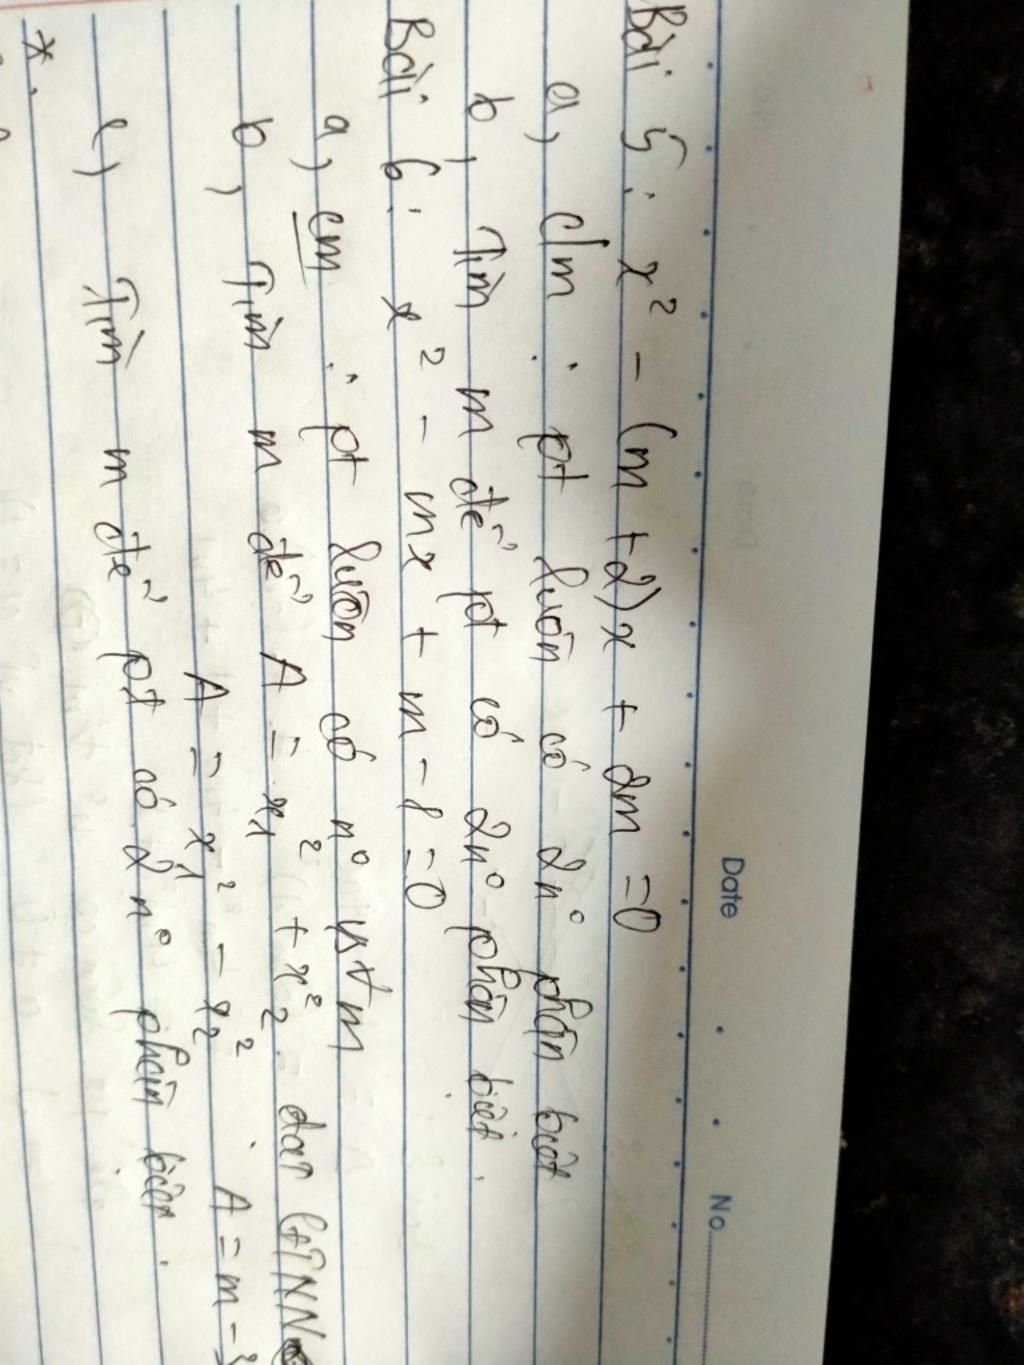 Date No.
Bài 5: x² - (m+2)x + 2m = 0
a, c/m: pt luôn có 2n° phân biệt
b, Tìm m để pt có 2n° phân biệt.
Bài 6: x² - mx + m - 1 = 0
a, cm: pt luôn có n° vs ∀m
b, Tìm m để A = x₁² + x₂² đạt GTNN
A = x₁² - x₂². A = m -
c, Tìm m để pt có 2n° phân biệt.
*.